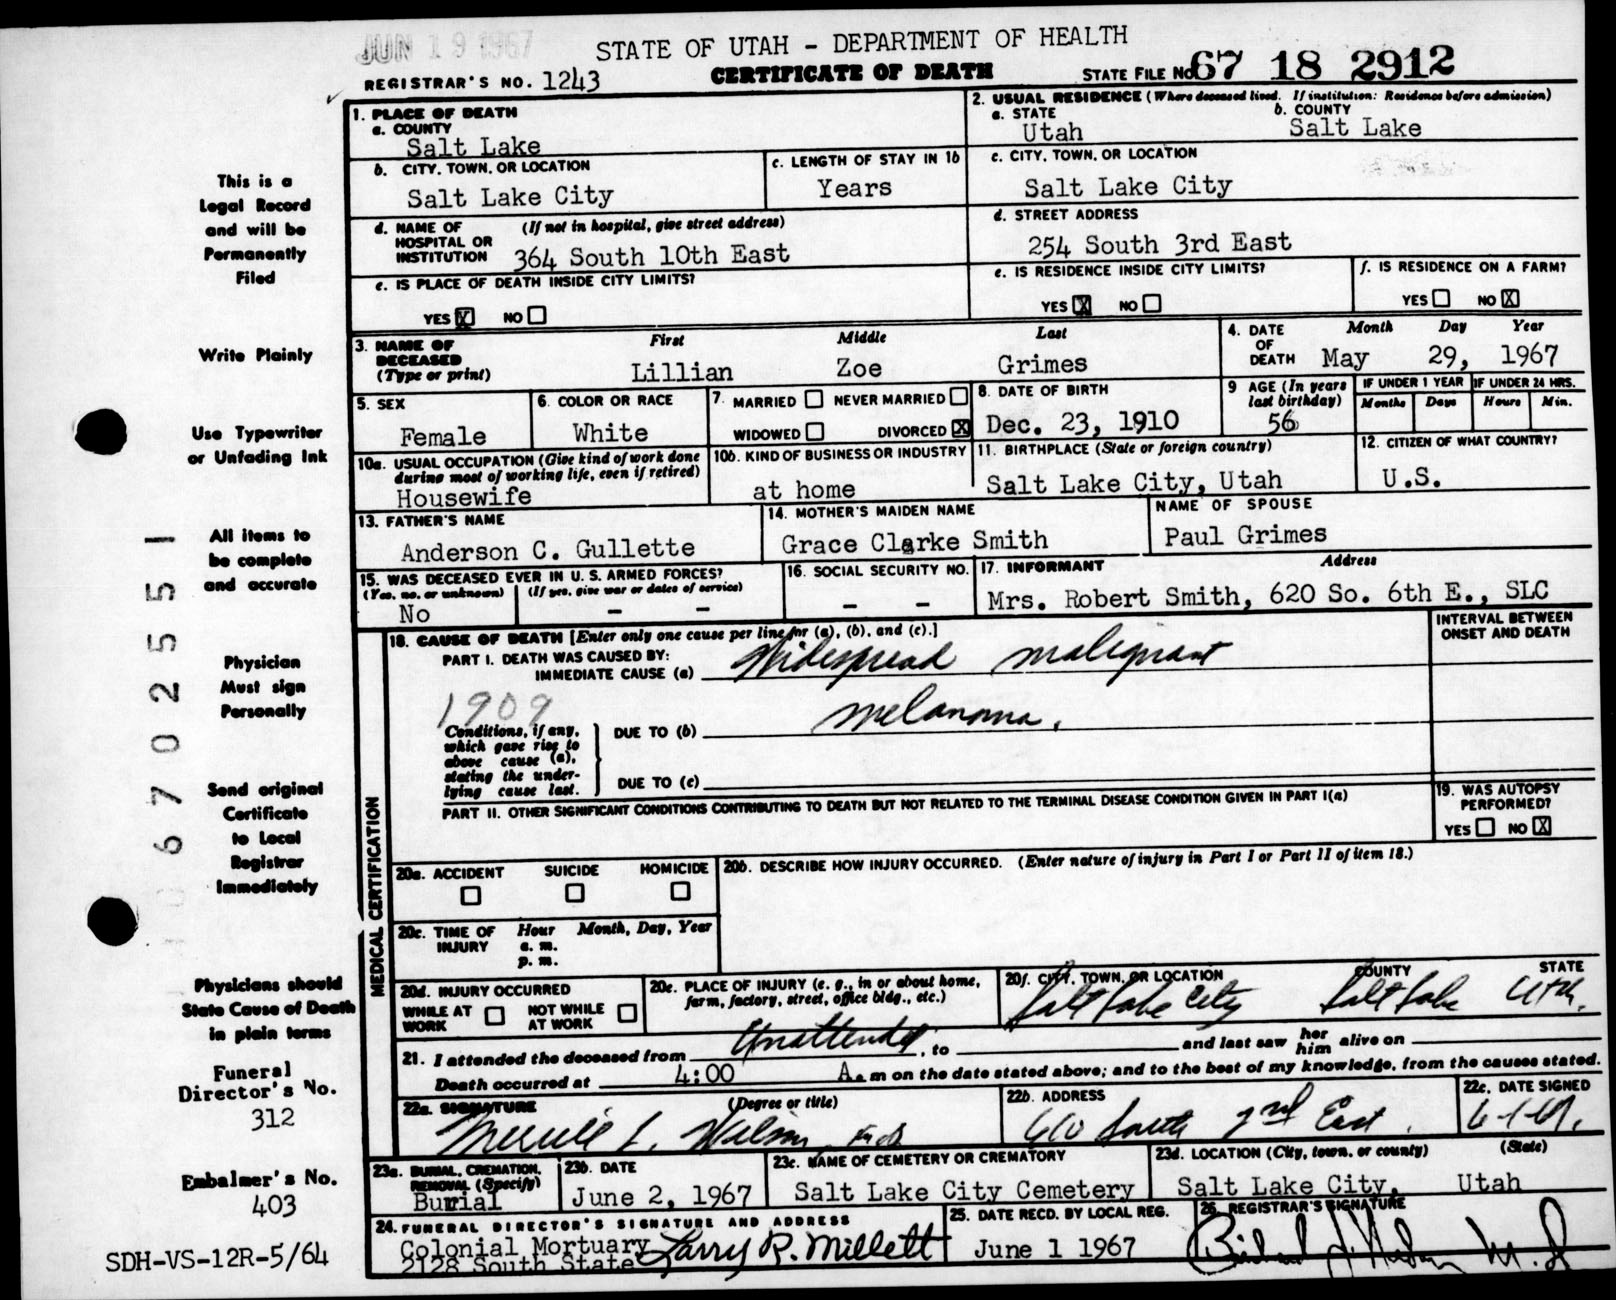 JUN 19 1967
STATE OF UTAH - DEPARTMENT OF HEALTH
REGISTRAR'S NO. 1243 CERTIFICATE OF DEATH STATE FILE NO. 67 18 2912
1. PLACE OF DEATH
a. COUNTY
Salt Lake
2. USUAL RESIDENCE (Where deceased lived. If institution: Residence before admission)
a. STATE b. COUNTY
Utah Salt Lake
b. CITY, TOWN, OR LOCATION
Salt Lake City
c. LENGTH OF STAY IN 1b
Years
c. CITY, TOWN, OR LOCATION
Salt Lake City
d. NAME OF HOSPITAL OR INSTITUTION (If not in hospital, give street address)
364 South 10th East
d. STREET ADDRESS
254 South 3rd East
e. IS PLACE OF DEATH INSIDE CITY LIMITS?
YES X NO
e. IS RESIDENCE INSIDE CITY LIMITS?
YES X NO
f. IS RESIDENCE ON A FARM?
YES NO X
3. NAME OF DECEASED (Type or print)
First Middle Last
Lillian Zoe Grimes
4. DATE OF DEATH Month Day Year
May 29, 1967
5. SEX
Female
6. COLOR OR RACE
White
7. MARRIED NEVER MARRIED
WIDOWED DIVORCED X
8. DATE OF BIRTH
Dec. 23, 1910
9 AGE (In years last birthday)
56
IF UNDER 1 YEAR IF UNDER 24 HRS.
Months Days Hours Min.
10a. USUAL OCCUPATION (Give kind of work done during most of working life, even if retired)
Housewife
10b. KIND OF BUSINESS OR INDUSTRY
at home
11. BIRTHPLACE (State or foreign country)
Salt Lake City, Utah
12. CITIZEN OF WHAT COUNTRY?
U.S.
13. FATHER'S NAME
Anderson C. Gullette
14. MOTHER'S MAIDEN NAME
Grace Clarke Smith
NAME OF SPOUSE
Paul Grimes
15. WAS DECEASED EVER IN U. S. ARMED FORCES?
(Yes, no, or unknown) (If yes, give war or dates of service)
No - -
16. SOCIAL SECURITY NO.
- -
17. INFORMANT Address
Mrs. Robert Smith, 620 So. 6th E., SLC
MEDICAL CERTIFICATION
18. CAUSE OF DEATH [Enter only one cause per line for (a), (b), and (c).]
INTERVAL BETWEEN ONSET AND DEATH
PART I. DEATH WAS CAUSED BY:
IMMEDIATE CAUSE (a) Widespread malignant
1909
Conditions, if any, which gave rise to above cause (a), stating the underlying cause last.
DUE TO (b) melanoma.
DUE TO (c)
PART II. OTHER SIGNIFICANT CONDITIONS CONTRIBUTING TO DEATH BUT NOT RELATED TO THE TERMINAL DISEASE CONDITION GIVEN IN PART I(a)
19. WAS AUTOPSY PERFORMED?
YES NO X
20a. ACCIDENT SUICIDE HOMICIDE
20b. DESCRIBE HOW INJURY OCCURRED. (Enter nature of injury in Part I or Part II of item 18.)
20c. TIME OF INJURY Hour Month, Day, Year
a. m.
p. m.
20d. INJURY OCCURRED
WHILE AT WORK NOT WHILE AT WORK
20e. PLACE OF INJURY (e. g., in or about home, farm, factory, street, office bldg., etc.)
20f. CITY, TOWN, OR LOCATION COUNTY STATE
Salt Lake City Salt Lake Utah.
21. I attended the deceased from Unattended, to and last saw her him alive on
Death occurred at 4:00 A. m on the date stated above; and to the best of my knowledge, from the causes stated.
22a. SIGNATURE (Degree or title)
L. Wilson
22b. ADDRESS
610 South 2nd East.
22c. DATE SIGNED
6-1-67.
23a. BURIAL, CREMATION, REMOVAL (Specify)
Burial
23b. DATE
June 2, 1967
23c. NAME OF CEMETERY OR CREMATORY
Salt Lake City Cemetery
23d. LOCATION (City, town, or county) (State)
Salt Lake City, Utah
24. FUNERAL DIRECTOR'S SIGNATURE AND ADDRESS
Colonial Mortuary Larry R. Millett
2128 South State
25. DATE RECD. BY LOCAL REG.
June 1 1967
26. REGISTRAR'S SIGNATURE
M.D.
This is a
Legal Record
and will be
Permanently
Filed
Write Plainly
Use Typewriter
or Unfading Ink
All items to
be complete
and accurate
Physician
Must sign
Personally
Send original
Certificate
to Local
Registrar
Immediately
Physicians should
State Cause of Death
in plain terms
Funeral
Director's No.
312
Embalmer's No.
403
SDH-VS-12R-5/64
067025551